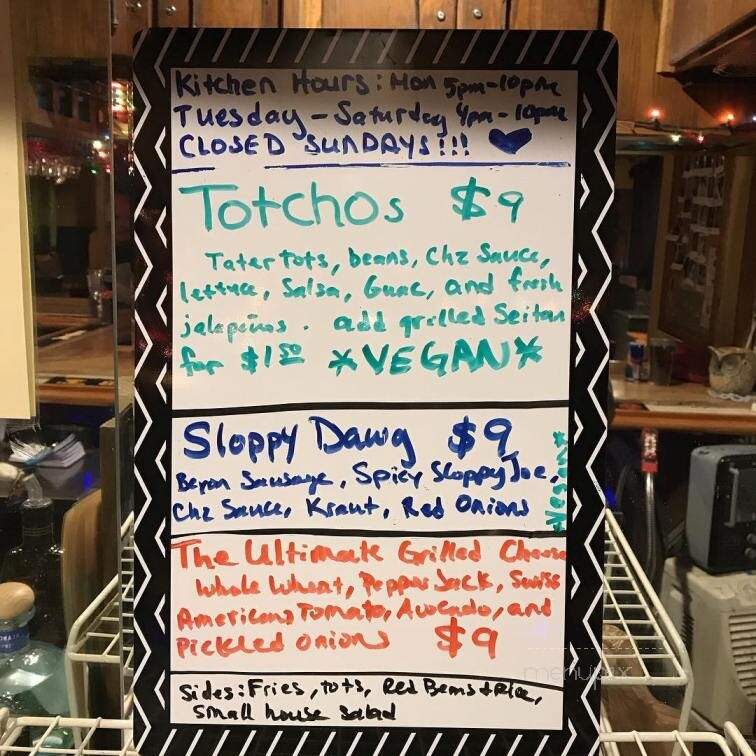 Kitchen Hours: Mon 5pm-10pm
Tuesday - Saturday 4pm - 10pm
CLOSED SUNDAYS!!!
Totchos $9
Tater tots, beans, Chz Sauce,
lettuce, Salsa, Guac, and fresh
jalepeños. add grilled Seitan
for $1.50 *VEGAN*
Sloppy Dawg $9
Beyon Sausage, Spicy Sloppy Joe,
Chz Sauce, Kraut, Red Onions
*Vegan*
The Ultimate Grilled Cheese
Whole Wheat, Pepper Jack, Swiss
American, Tomato, Avocado, and
Pickled onions $9
Sides: Fries, tots, Red Beans + Rice,
Small house salad
menupix